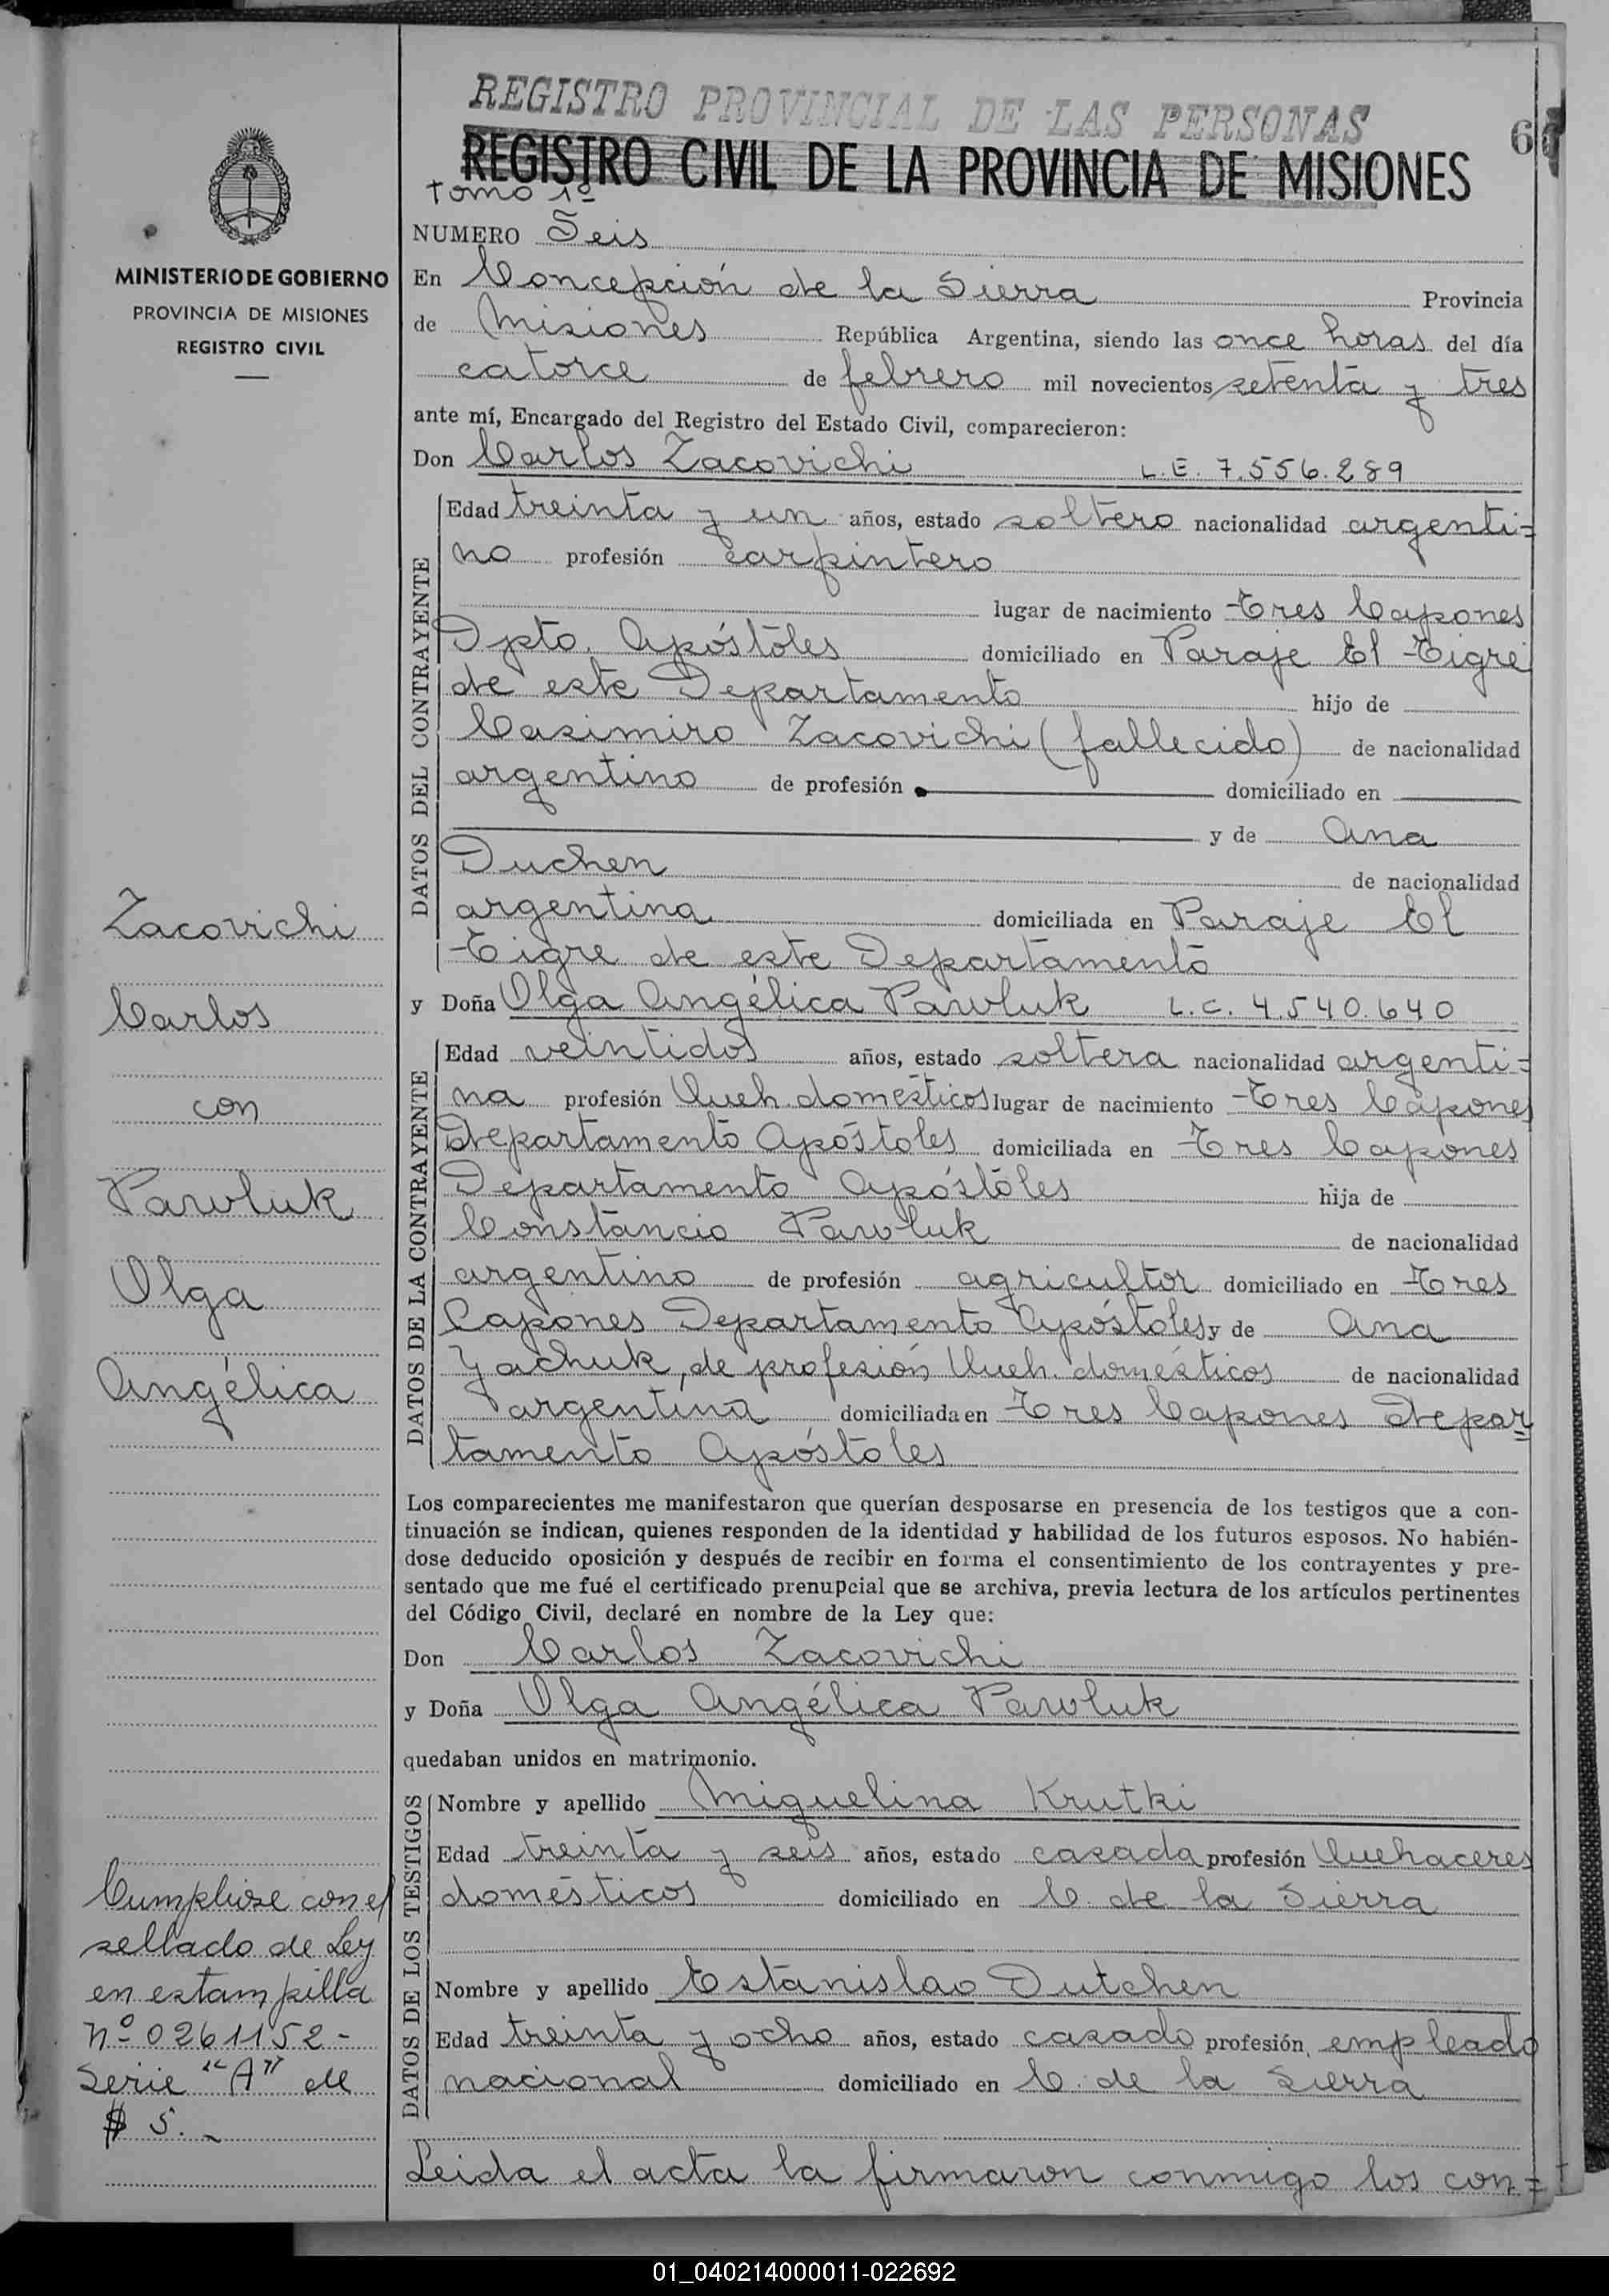 REGISTRO PROVINCIAL DE LAS PERSONAS
REGISTRO CIVIL DE LA PROVINCIA DE MISIONES
6
Tomo 1º
MINISTERIO DE GOBIERNO
PROVINCIA DE MISIONES
REGISTRO CIVIL
NUMERO Seis
En Concepción de la Sierra Provincia
de Misiones República Argentina, siendo las once horas del día
catorce de febrero mil novecientos setenta y tres
ante mí, Encargado del Registro del Estado Civil, comparecieron:
Don Carlos Zacovichi L.E. 7.556.289
DATOS DEL CONTRAYENTE
Edad treinta y un años, estado soltero nacionalidad argenti=
no profesión carpintero
lugar de nacimiento Tres Capones
Dpto. Apóstoles domiciliado en Paraje El Tigre
de este Departamento hijo de
Casimiro Zacovichi (fallecido) de nacionalidad
argentino de profesión domiciliado en
y de Ana
Duchen de nacionalidad
argentina domiciliada en Paraje El
Tigre de este Departamento
y Doña Olga Angélica Pawluk L.C. 4.540.640
DATOS DE LA CONTRAYENTE
Edad veintidos años, estado soltera nacionalidad argenti=
na profesión Queh. domésticos lugar de nacimiento Tres Capones
Departamento Apóstoles domiciliada en Tres Capones
Departamento Apóstoles hija de
Constancio Pawluk de nacionalidad
argentino de profesión agricultor domiciliado en Tres
Capones Departamento Apóstoles y de Ana
Yachuk, de profesión Queh. domésticos de nacionalidad
argentina domiciliada en Tres Capones Depar
tamento Apóstoles
Los comparecientes me manifestaron que querían desposarse en presencia de los testigos que a con-
tinuación se indican, quienes responden de la identidad y habilidad de los futuros esposos. No habién-
dose deducido oposición y después de recibir en forma el consentimiento de los contrayentes y pre-
sentado que me fué el certificado prenupcial que se archiva, previa lectura de los artículos pertinentes
del Código Civil, declaré en nombre de la Ley que:
Don Carlos Zacovichi
y Doña Olga Angélica Pawluk
quedaban unidos en matrimonio.
DATOS DE LOS TESTIGOS
Nombre y apellido Miguelina Krutki
Edad treinta y seis años, estado casada profesión Quehaceres
domésticos domiciliado en C. de la Sierra
Nombre y apellido Estanislao Dutchen
Edad treinta y ocho años, estado casado profesión empleado
nacional domiciliado en C. de la Sierra
Leida el acta la firmaron conmigo los con=
Zacovichi
Carlos
con
Pawluk
Olga
Angélica
Cumpliose con el
sellado de Ley
en estampilla
nº 0261152-
Serie "A" de
$ 5.-
01_040214000011-022692